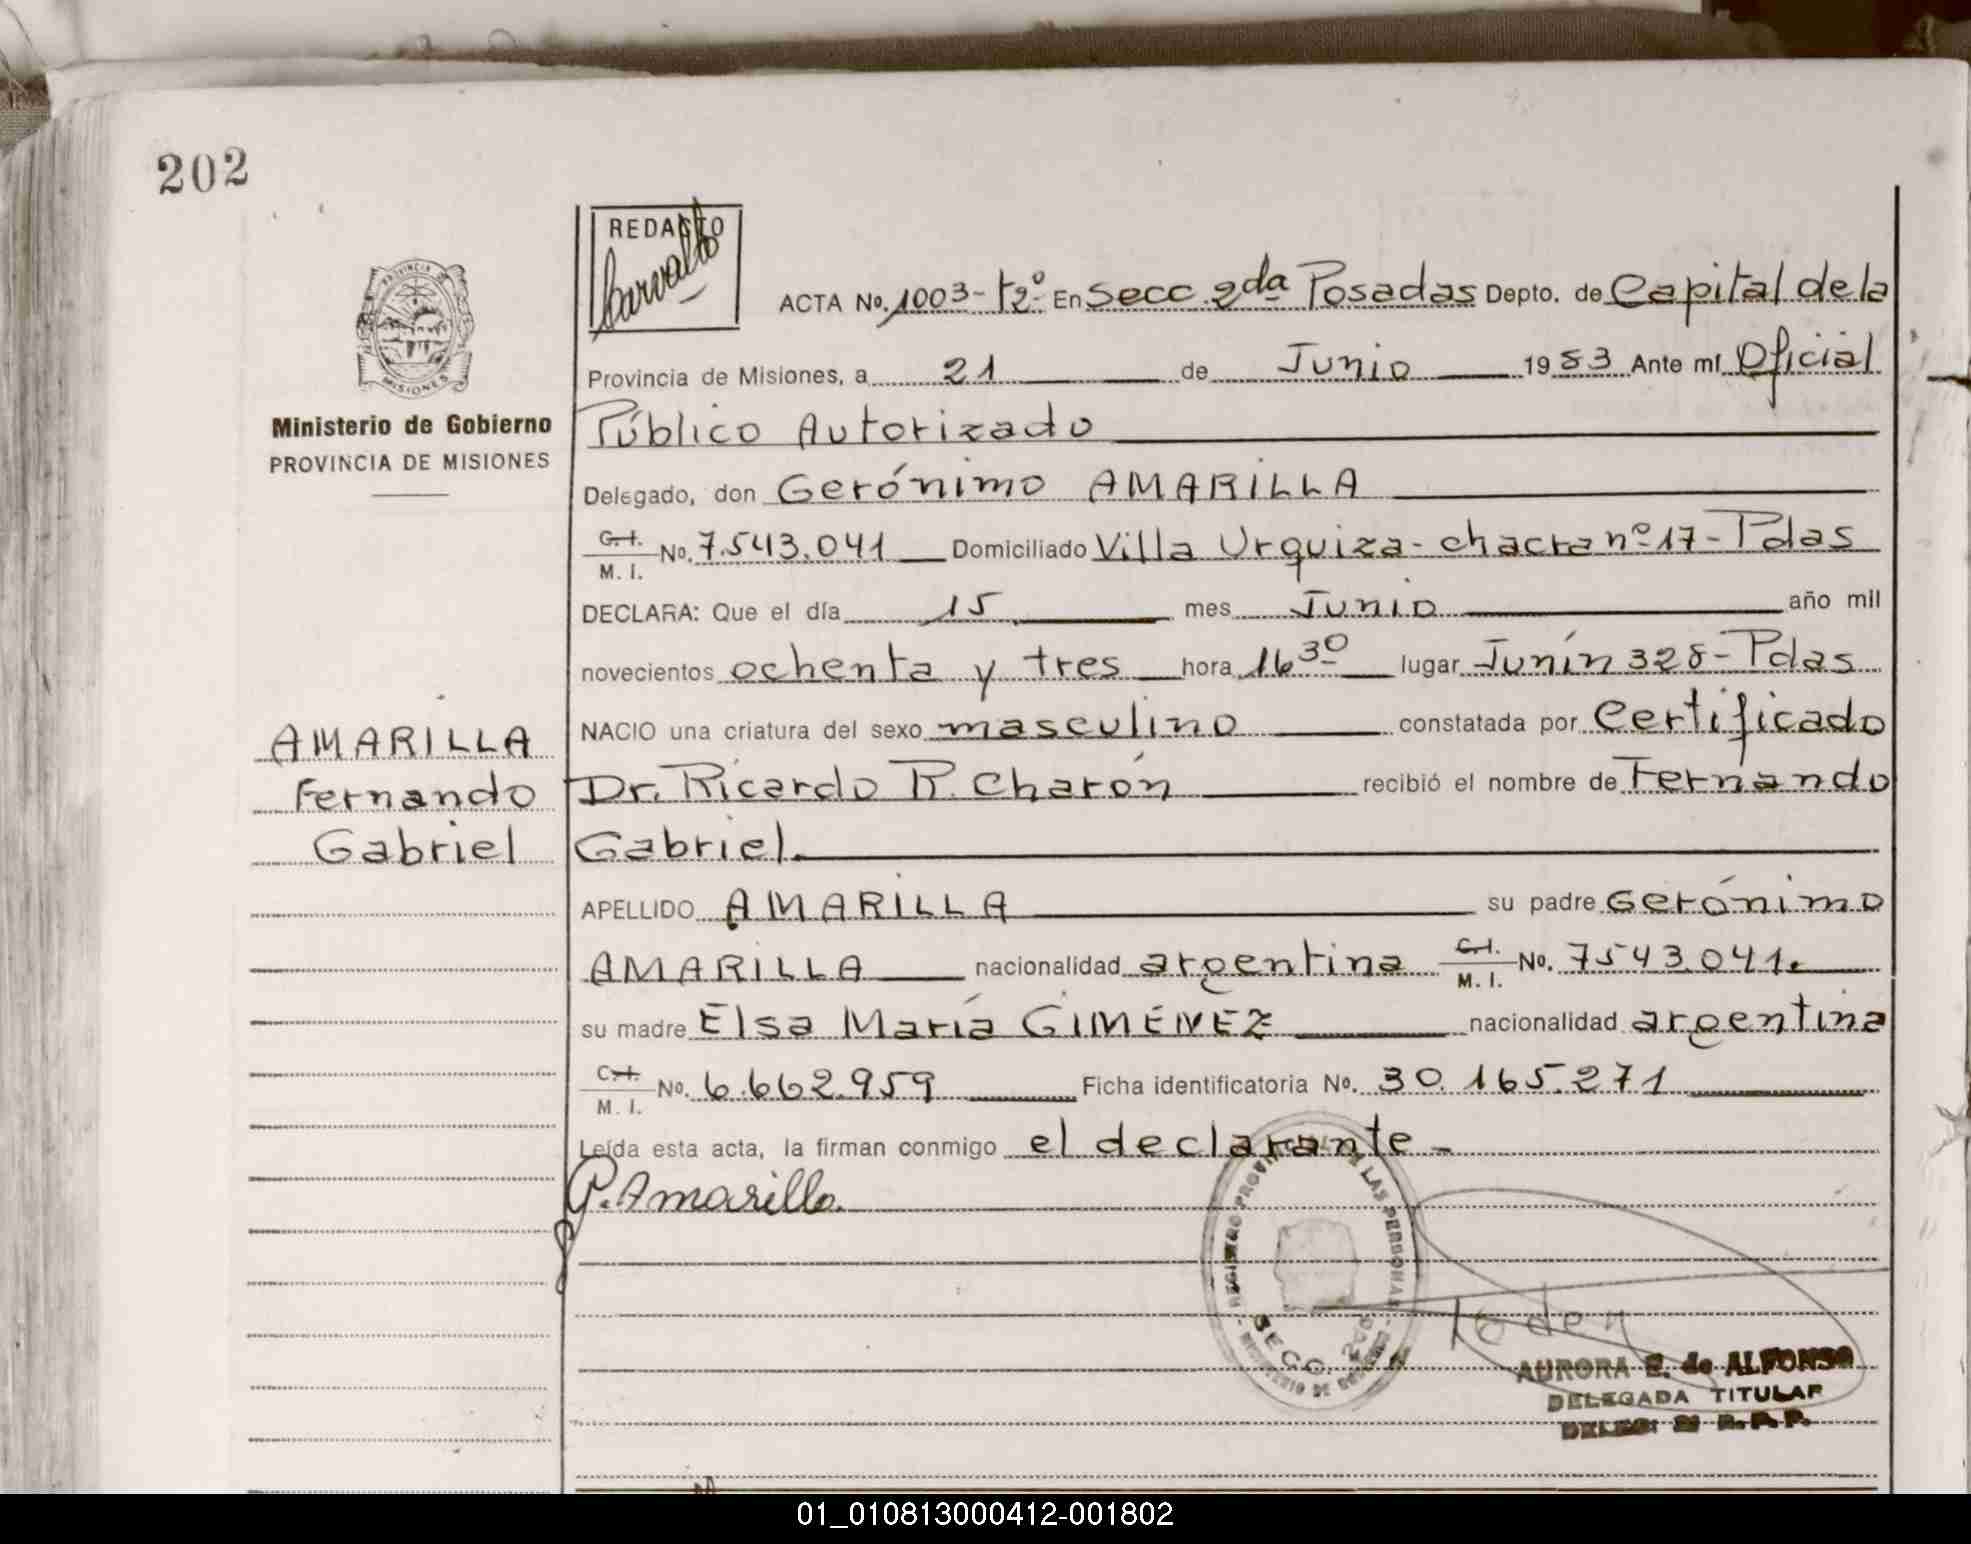 202
REDACTO
Carvallo
ACTA No. 1003- tº2- En Secc. 2da Posadas Depto. de Capital de la
Provincia de Misiones, a 21 de Junio 1983 Ante mí Oficial
Público Autorizado
Delegado, don Gerónimo AMARILLA
C.I. M.I. No. 7.543.041 Domiciliado Villa Urquiza- chacra nº 17- Pdas
DECLARA: Que el día 15 mes Junio año mil
novecientos ochenta y tres hora 16 30 lugar Junín 328- Pdas
NACIO una criatura del sexo masculino constatada por Certificado
Dr. Ricardo R. Charón recibió el nombre de Fernando
Gabriel.
APELLIDO AMARILLA su padre Gerónimo
AMARILLA nacionalidad argentina C.I. M.I. No. 7543.041.
su madre Elsa María GIMÉNEZ nacionalidad argentina
C.I. M.I. No. 6.662.959 Ficha identificatoria No. 30.165.271
Leída esta acta, la firman conmigo el declarante-
G. Amarilla.
PROVINCIA DE
MISIONES
Ministerio de Gobierno
PROVINCIA DE MISIONES
AMARILLA
Fernando
Gabriel
REGISTRO PROVINCIAL DE LAS PERSONAS
SECC. 2da
MINISTERIO DE GOBIERNO
AURORA E. de ALFONSO
DELEGADA TITULAR
R.P.P.
01_010813000412-001802